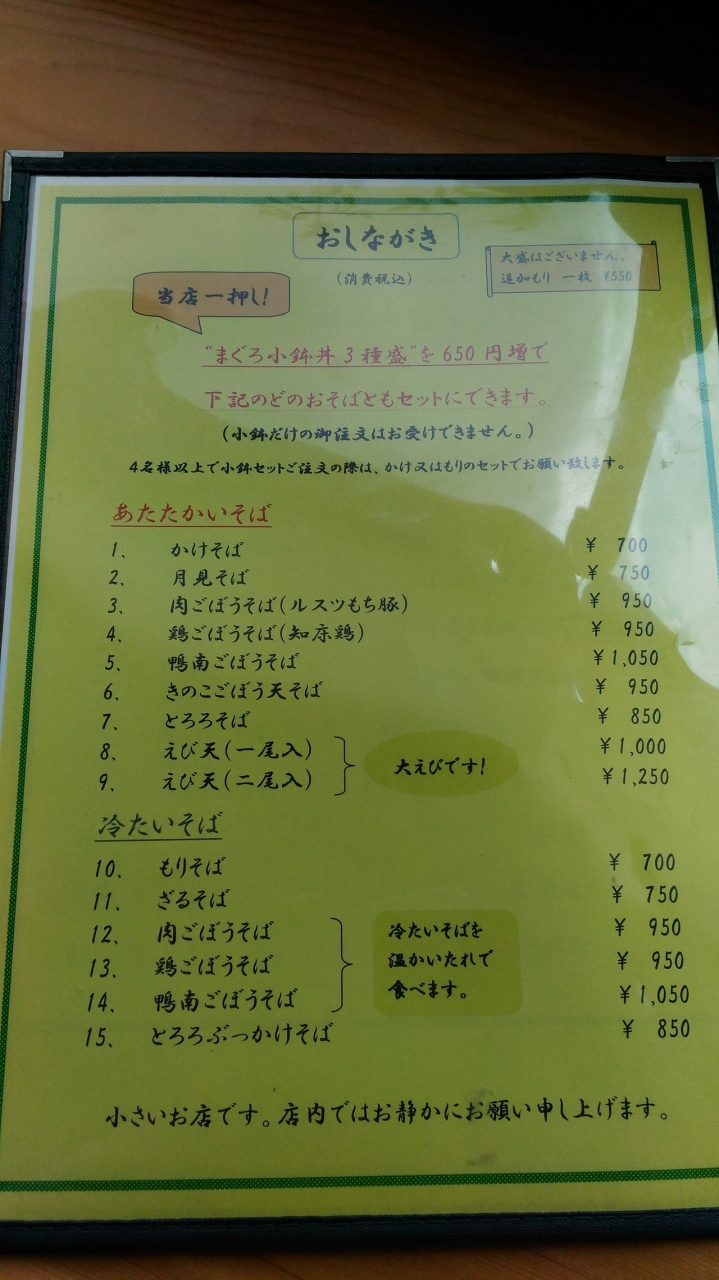 おしながき
(消費税込)
大盛はございません。
追加もり 一枚 ¥550
当店一押し!
“まぐろ小鉢丼3種盛”を650円増で
下記のどのおそばともセットにできます。
(小鉢だけの御注文はお受けできません。)
4名様以上で小鉢セットご注文の際は、かけ又はもりのセットでお願い致します。
あたたかいそば
1、 かけそば ¥ 700
2、 月見そば ¥ 750
3、 肉ごぼうそば(ルスツもち豚) ¥ 950
4、 鶏ごぼうそば(知床鶏) ¥ 950
5、 鴨南ごぼうそば ¥1,050
6、 きのこごぼう天そば ¥ 950
7、 とろろそば ¥ 850
8、 えび天(一尾入) ¥1,000
大えびです!
9、 えび天(二尾入) ¥1,250
冷たいそば
10、 もりそば ¥ 700
11、 ざるそば ¥ 750
12、 肉ごぼうそば ¥ 950
13、 鶏ごぼうそば ¥ 950
14、 鴨南ごぼうそば ¥1,050
冷たいそばを
温かいたれで
食べます。
15、 とろろぶっかけそば ¥ 850
小さいお店です。店内ではお静かにお願い申し上げます。